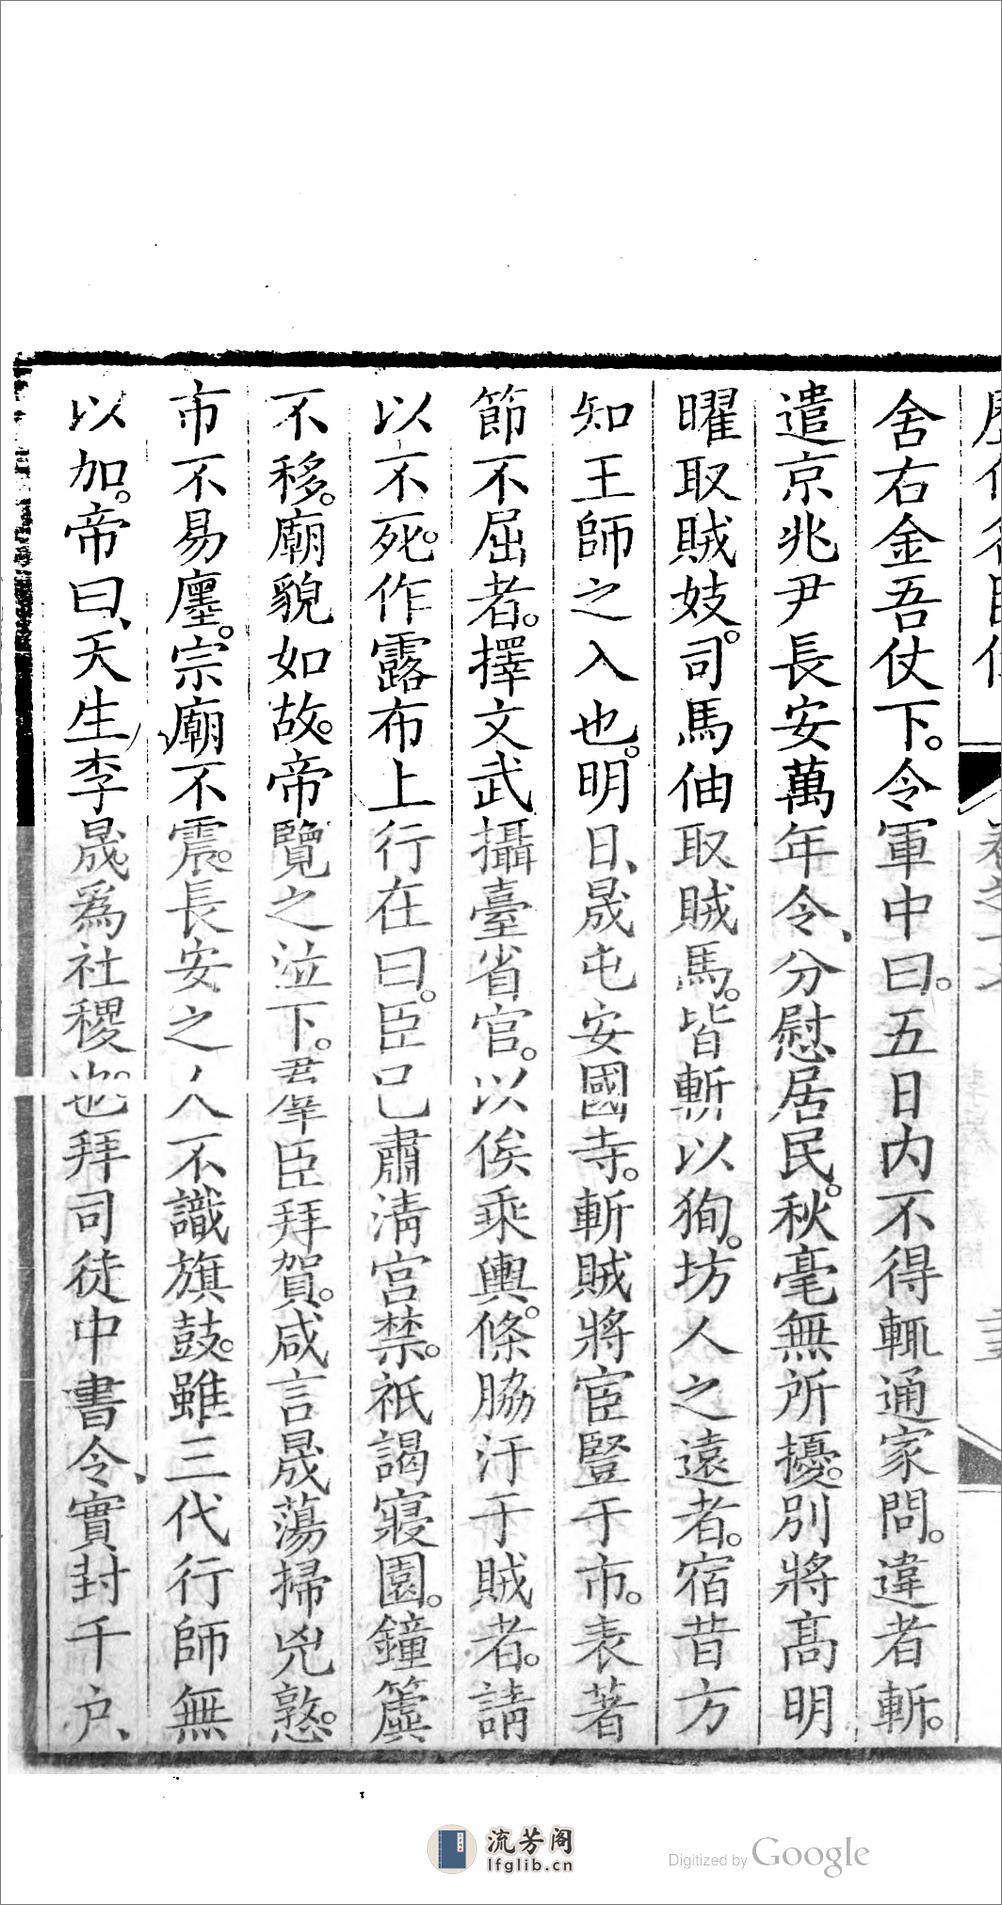 舍右金吾仗下。令軍中曰。五日内不得輒通家問。違者斬。
遣京兆尹長安萬年令、分慰居民。秋毫無所擾。別將高明
曜取賊妓。司馬伷取賊馬。皆斬以狥。坊人之遠者。宿昔方
知王師之入也。明日、晟屯安國寺。斬賊將宦豎于市。表著
節不屈者。擇文武攝臺省官。以俟乘輿。條脇汙于賊者。請
以不死。作露布上行在曰。臣已肅清宫禁。祇謁寢園。鐘簴
不移。廟貌如故。帝覽之泣下。羣臣拜賀。咸言晟蕩掃兇憝。
市不易廛。宗廟不震。長安之人不識旗鼓。雖三代行師無
以加。帝曰、天生李晟。爲社稷也。拜司徒中書令、實封千户、
流芳阁
lfglib.cn
Digitized by Google